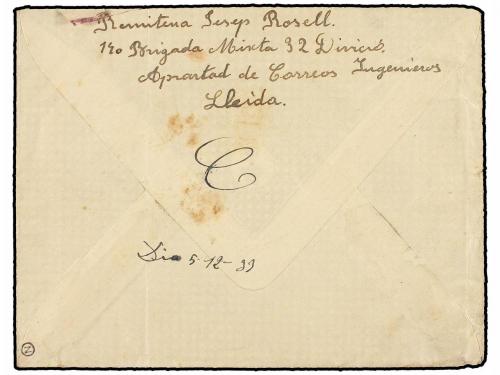 Remitena Josep Rosell.
140 Brigada Mixta 32 Divició.
Apractad de Correos Ingenieros
Lleida.
C
Dia 5-12-39
N